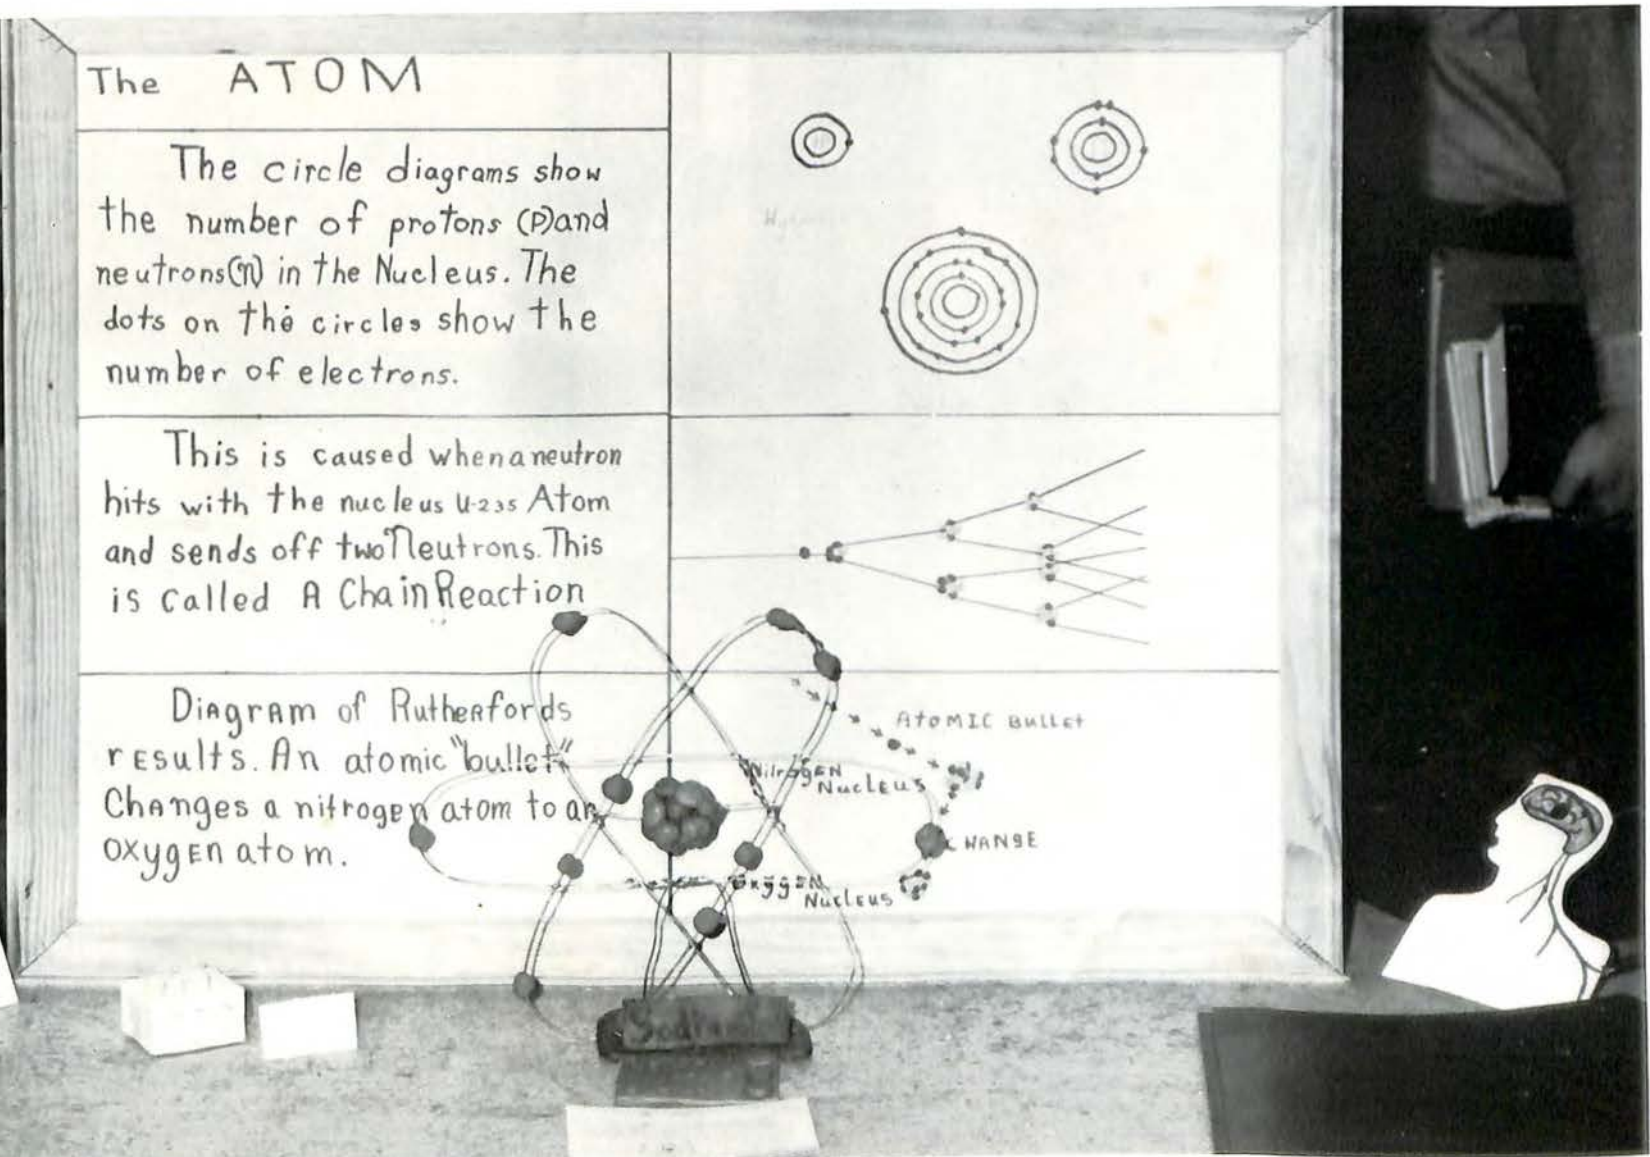 The ATOM
The circle diagrams show
the number of protons (P)and
neutrons(n) in the Nucleus. The
dots on the circles show the
number of electrons.
This is caused when a neutron
hits with the nucleus U-235 Atom
and sends off two Neutrons. This
is called A Chain Reaction
Diagram of Rutherfords
results. An atomic "bullet"
Changes a nitrogen atom to an
oxygen atom.
ATOMIC BULLET
NitrogEN
NuclEUS
CHANGE
OxygEN
NuclEUS